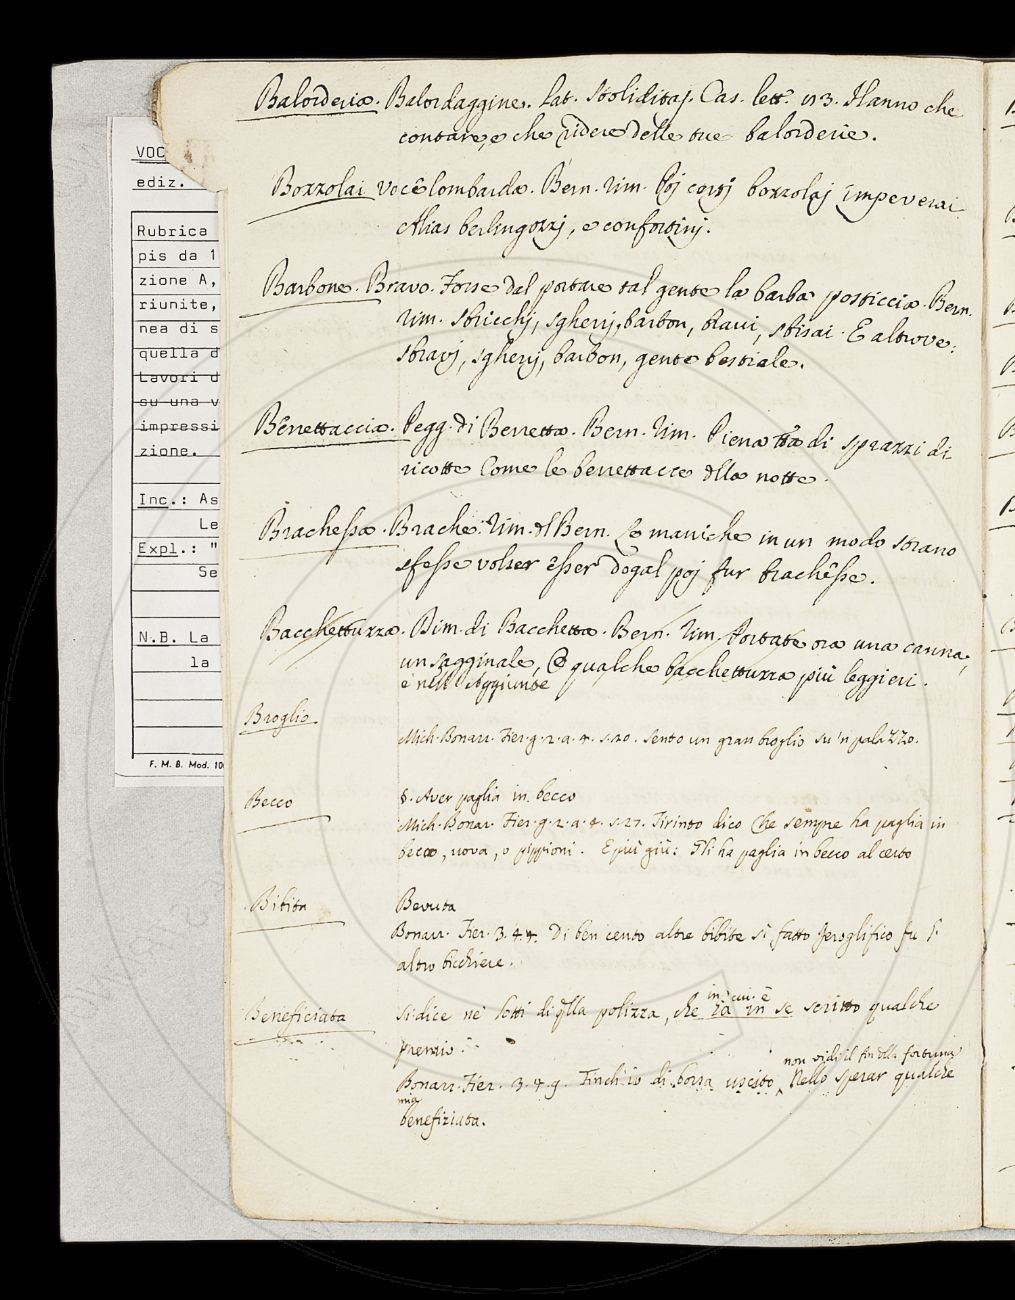 Balorderia. Balordaggine. Lat. Stoliditas. Cas. lett. 113. Hanno che
contare, e che ridere delle tue balorderie.
Bozzolai voce lombarda. Bern. rim. Poj certj bozzolaj impeverai
Alias berlingozzj, e confortinj.
Barbone. Bravo. Forse dal portare tal gente la barba posticcia. Bern.
rim. stricchj, sgherrj, barbon, bravi, sbisai. E altrove:
sbravj, sgherrj, barbon, gente bestiale.
Berrettaccia. Pegg. di Berretta. Bern. rim. Piena tta di sprazzi di
ricotte Come le berrettacce dlla notte.
Brachesse. Brache. Rim. dl Bern. Le maniche in un modo strano
fesse volser esser dogal poj fur brachesse.
Bacchettuzza. Dim. di Bacchetta. Bern. rim. Portate ora una canna,
un sagginale, O qualche bacchettuzza più leggieri.
è nell' Aggiunte
Broglio.
Mich. Bonarr. Fier. g. 2. a. 4. s. 20. sento un gran broglio su 'n palazzo.
Becco
§. Aver paglia in becco
Mich. Bonar. Fier. g. 2. a. 4. s. 27. Tirinto dico Che sempre ha paglia in
becco, uova, o pippioni. E più giù: Gli ha paglia in becco al certo
Bibita
Bevuta
Bonarr. Fier. 3. 4. 4. Di ben cento altre bibite si fatto Jeroglifico fu l'
altro bicchiere.
Beneficiata
si dice ne' lotti di qlla polizza, che
in cui è
va in se scritto qualche
premio
non vidi il fin dlla fortuna
Bonarr. Fier. 3. 4. 9. Finch'io di borsa uscito, Nello sperar qualche
mia
benefiziata.
VOC
ediz.
Rubrica
pis da 1
zione A,
riunite,
nea di s
quella d
Lavori d
su una v
impressi
zione.
Inc.: As
Le
Expl.: "
Se
N.B. La
la
F. M. B. Mod. 10